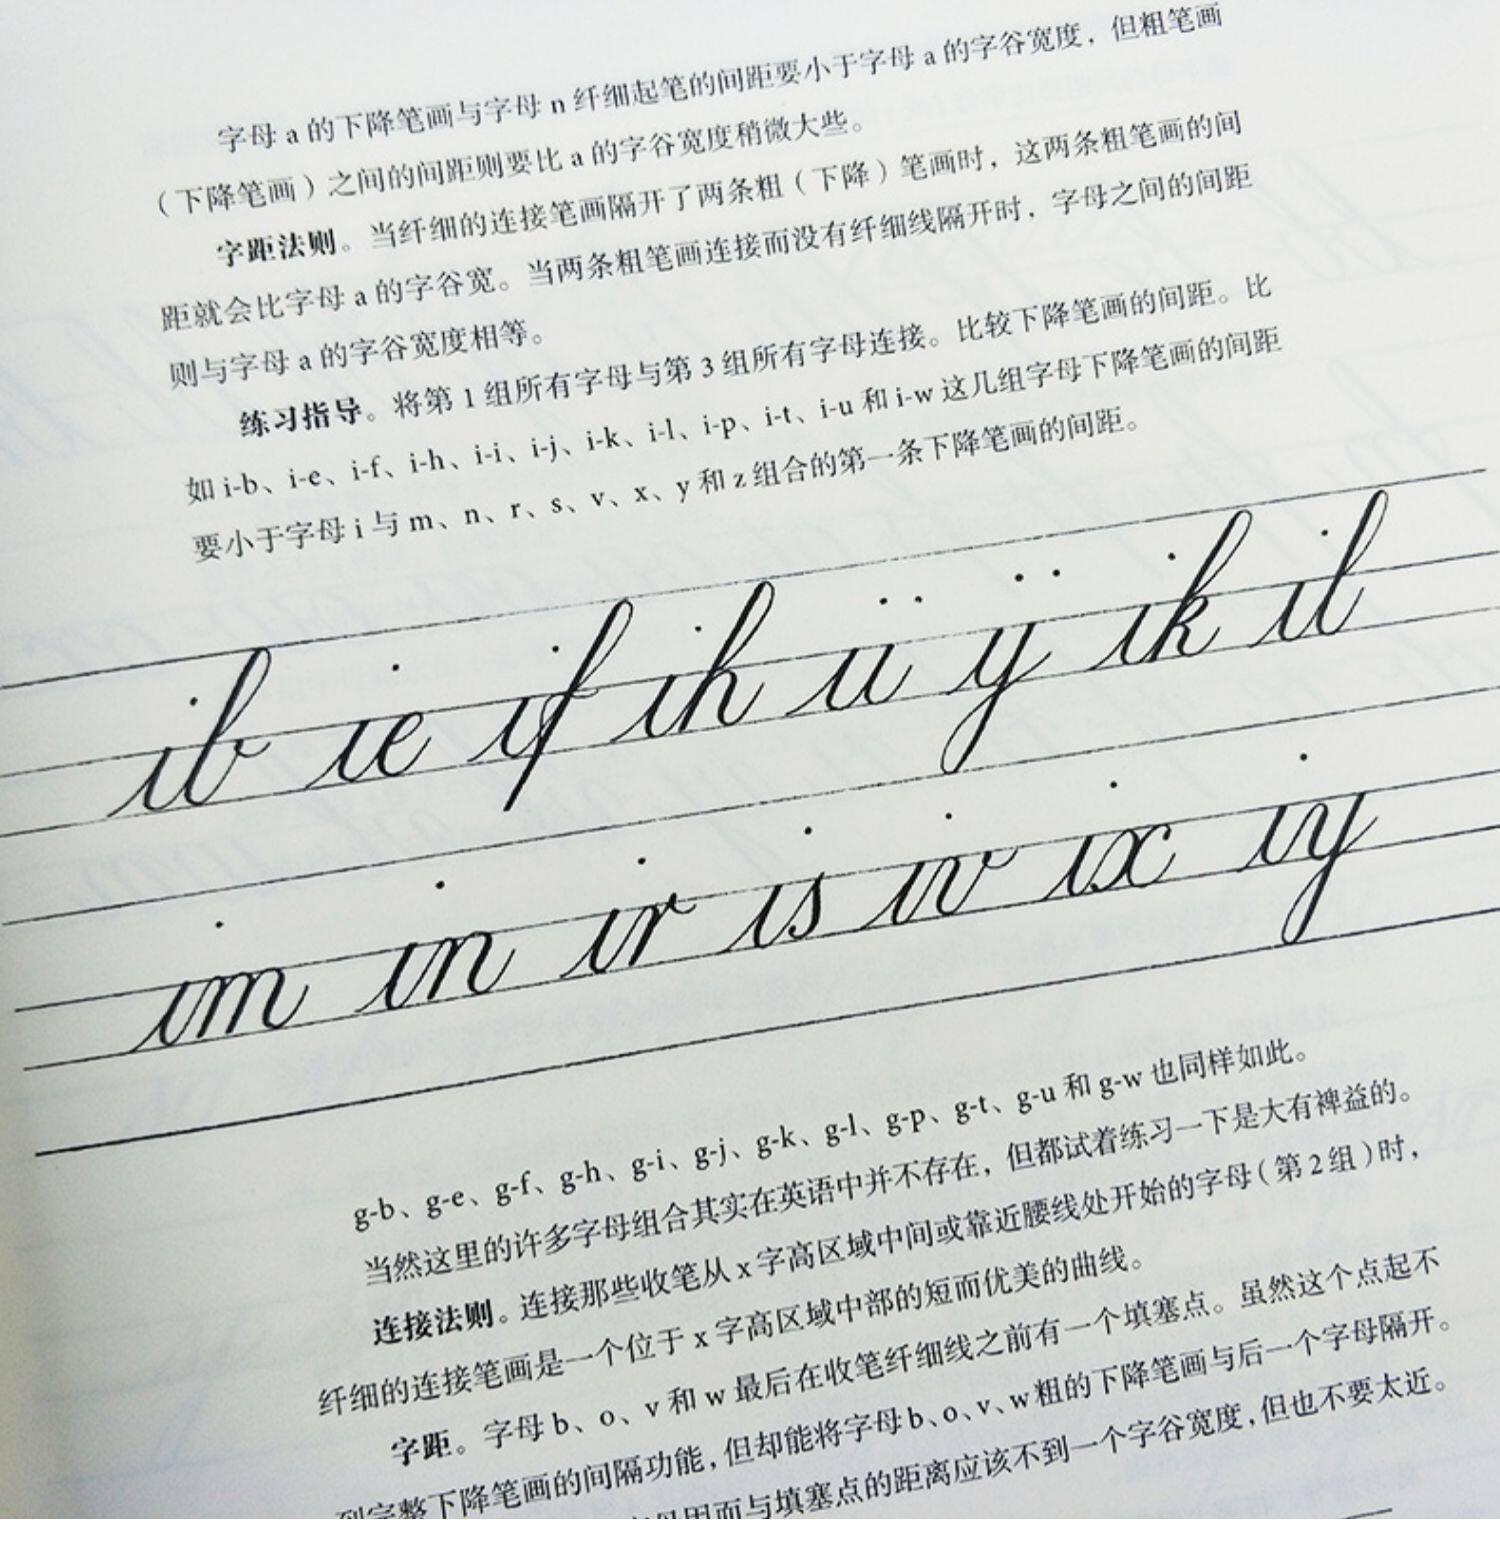 字母 a 的下降笔画与字母 n 纤细起笔的间距要小于字母 a 的字谷宽度，但粗笔画
（下降笔画）之间的间距则要比 a 的字谷宽度稍微大些。
字距法则。当纤细的连接笔画隔开了两条粗（下降）笔画时，这两条粗笔画的间
距就会比字母 a 的字谷宽。当两条粗笔画连接而没有纤细线隔开时，字母之间的间距
则与字母 a 的字谷宽度相等。
练习指导。将第 1 组所有字母与第 3 组所有字母连接。比较下降笔画的间距。比
如 i-b、i-e、i-f、i-h、i-i、i-j、i-k、i-l、i-p、i-t、i-u 和 i-w 这几组字母下降笔画的间距
要小于字母 i 与 m、n、r、s、v、x、y 和 z 组合的第一条下降笔画的间距。
ib ie if ih ii ij ik il
im in ir is iv ix iy
g-b、g-e、g-f、g-h、g-i、g-j、g-k、g-l、g-p、g-t、g-u 和 g-w 也同样如此。
当然这里的许多字母组合其实在英语中并不存在，但都试着练习一下是大有裨益的。
连接法则。连接那些收笔从 x 字高区域中间或靠近腰线处开始的字母（第 2 组）时，
纤细的连接笔画是一个位于 x 字高区域中部的短而优美的曲线。
字距。字母 b、o、v 和 w 最后在收笔纤细线之前有一个填塞点。虽然这个点起不
到完整下降笔画的间隔功能，但却能将字母 b、o、v、w 粗的下降笔画与后一个字母隔开。
而与填塞点的距离应该不到一个字谷宽度，但也不要太近。